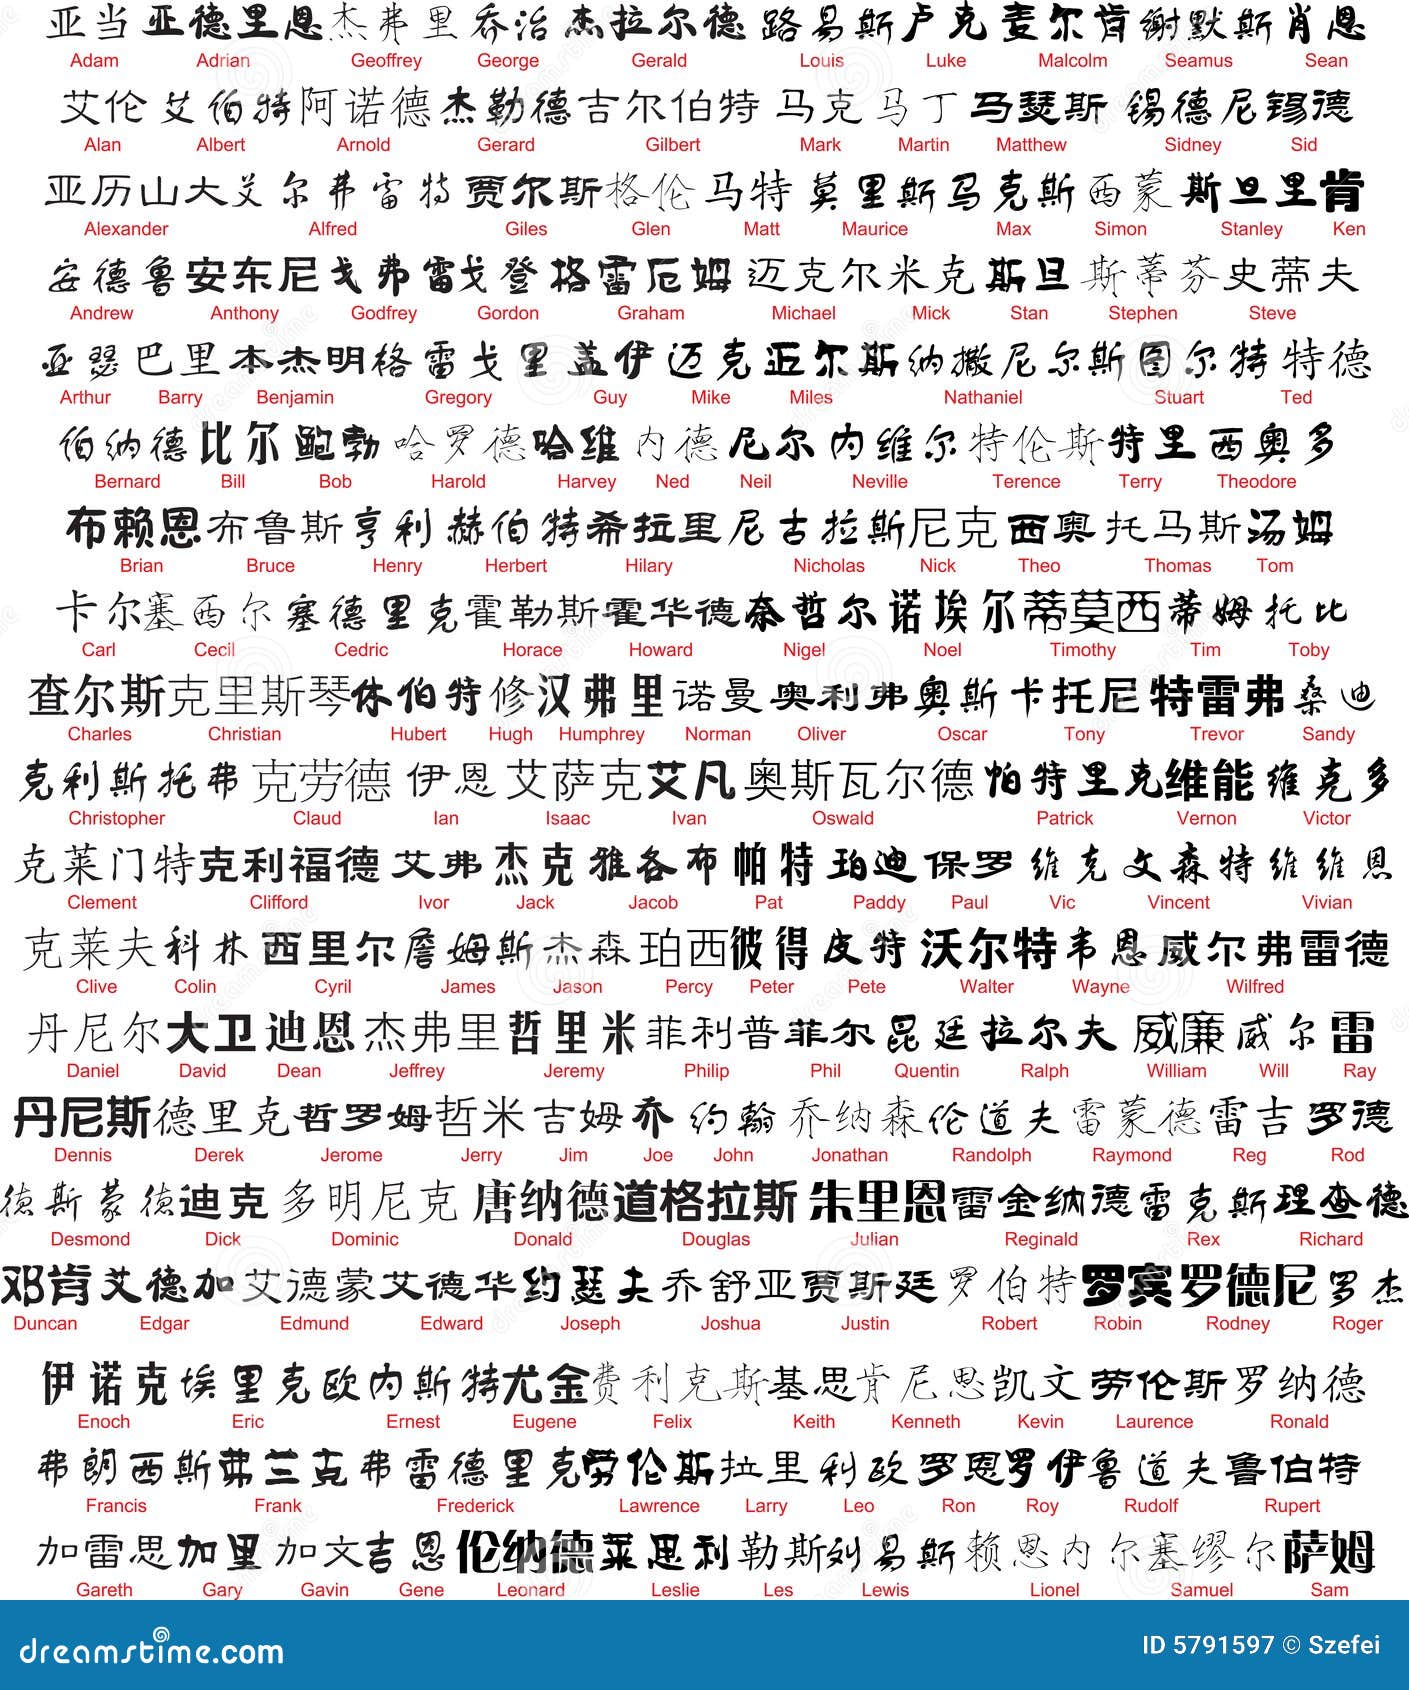 亚当 亚德里恩 杰弗里 乔治 杰拉尔德 路易斯 卢克 麦尔肯 谢默斯 肖恩
Adam Adrian Geoffrey George Gerald Louis Luke Malcolm Seamus Sean
艾伦 艾伯特 阿诺德 杰勒德 吉尔伯特 马克 马丁 马瑟斯 锡德尼 锡德
Alan Albert Arnold Gerard Gilbert Mark Martin Matthew Sidney Sid
亚历山大 艾尔弗雷特 贾尔斯 格伦 马特 莫里斯 马克斯 西蒙 斯旦里 肯
Alexander Alfred Giles Glen Matt Maurice Max Simon Stanley Ken
安德鲁 安东尼 戈弗雷 戈登 格雷厄姆 迈克尔 米克 斯旦 斯蒂芬 史蒂夫
Andrew Anthony Godfrey Gordon Graham Michael Mick Stan Stephen Steve
亚瑟 巴里 本杰明 格雷戈里 盖伊 迈克 迈尔斯 纳撒尼尔 斯图尔特 特德
Arthur Barry Benjamin Gregory Guy Mike Miles Nathaniel Stuart Ted
伯纳德 比尔 鲍勃 哈罗德 哈维 内德 尼尔 内维尔 特伦斯 特里 西奥多
Bernard Bill Bob Harold Harvey Ned Neil Neville Terence Terry Theodore
布赖恩 布鲁斯 亨利 赫伯特 希拉里 尼古拉斯 尼克 西奥 托马斯 汤姆
Brian Bruce Henry Herbert Hilary Nicholas Nick Theo Thomas Tom
卡尔 塞西尔 塞德里克 霍勒斯 霍华德 奈哲尔 诺埃尔 蒂莫西 蒂姆 托比
Carl Cecil Cedric Horace Howard Nigel Noel Timothy Tim Toby
查尔斯 克里斯琴 休伯特 修 汉弗里 诺曼 奥利弗 奥斯卡 托尼 特雷弗 桑迪
Charles Christian Hubert Hugh Humphrey Norman Oliver Oscar Tony Trevor Sandy
克利斯托弗 克劳德 伊恩 艾萨克 艾凡 奥斯瓦尔德 帕特里克 维能 维克多
Christopher Claud Ian Isaac Ivan Oswald Patrick Vernon Victor
克莱门特 克利福德 艾弗 杰克 雅各布 帕特 珀迪 保罗 维克 文森特 维维恩
Clement Clifford Ivor Jack Jacob Pat Paddy Paul Vic Vincent Vivian
克莱夫 科林 西里尔 詹姆斯 杰森 珀西 彼得 皮特 沃尔特 韦恩 威尔弗雷德
Clive Colin Cyril James Jason Percy Peter Pete Walter Wayne Wilfred
丹尼尔 大卫 迪恩 杰弗里 哲里米 菲利普 菲尔 昆廷 拉尔夫 威廉 威尔 雷
Daniel David Dean Jeffrey Jeremy Philip Phil Quentin Ralph William Will Ray
丹尼斯 德里克 哲罗姆 哲米 吉姆 乔 约翰 乔纳森 伦道夫 雷蒙德 雷吉 罗德
Dennis Derek Jerome Jerry Jim Joe John Jonathan Randolph Raymond Reg Rod
德斯蒙德 迪克 多明尼克 唐纳德 道格拉斯 朱里恩 雷金纳德 雷克斯 理查德
Desmond Dick Dominic Donald Douglas Julian Reginald Rex Richard
邓肯 艾德加 艾德蒙 艾德华 约瑟夫 乔舒亚 贾斯廷 罗伯特 罗宾 罗德尼 罗杰
Duncan Edgar Edmund Edward Joseph Joshua Justin Robert Robin Rodney Roger
伊诺克 埃里克 欧内斯特 尤金 费利克斯 基思 肯尼思 凯文 劳伦斯 罗纳德
Enoch Eric Ernest Eugene Felix Keith Kenneth Kevin Laurence Ronald
弗朗西斯 弗兰克 弗雷德里克 劳伦斯 拉里 利欧 罗恩 罗伊 鲁道夫 鲁伯特
Francis Frank Frederick Lawrence Larry Leo Ron Roy Rudolf Rupert
加雷思 加里 加文 吉恩 伦纳德 莱思利 勒斯 列易斯 赖恩内尔 塞缪尔 萨姆
Gareth Gary Gavin Gene Leonard Leslie Les Lewis Lionel Samuel Sam
dreamstime.com ID 5791597 © Szefei